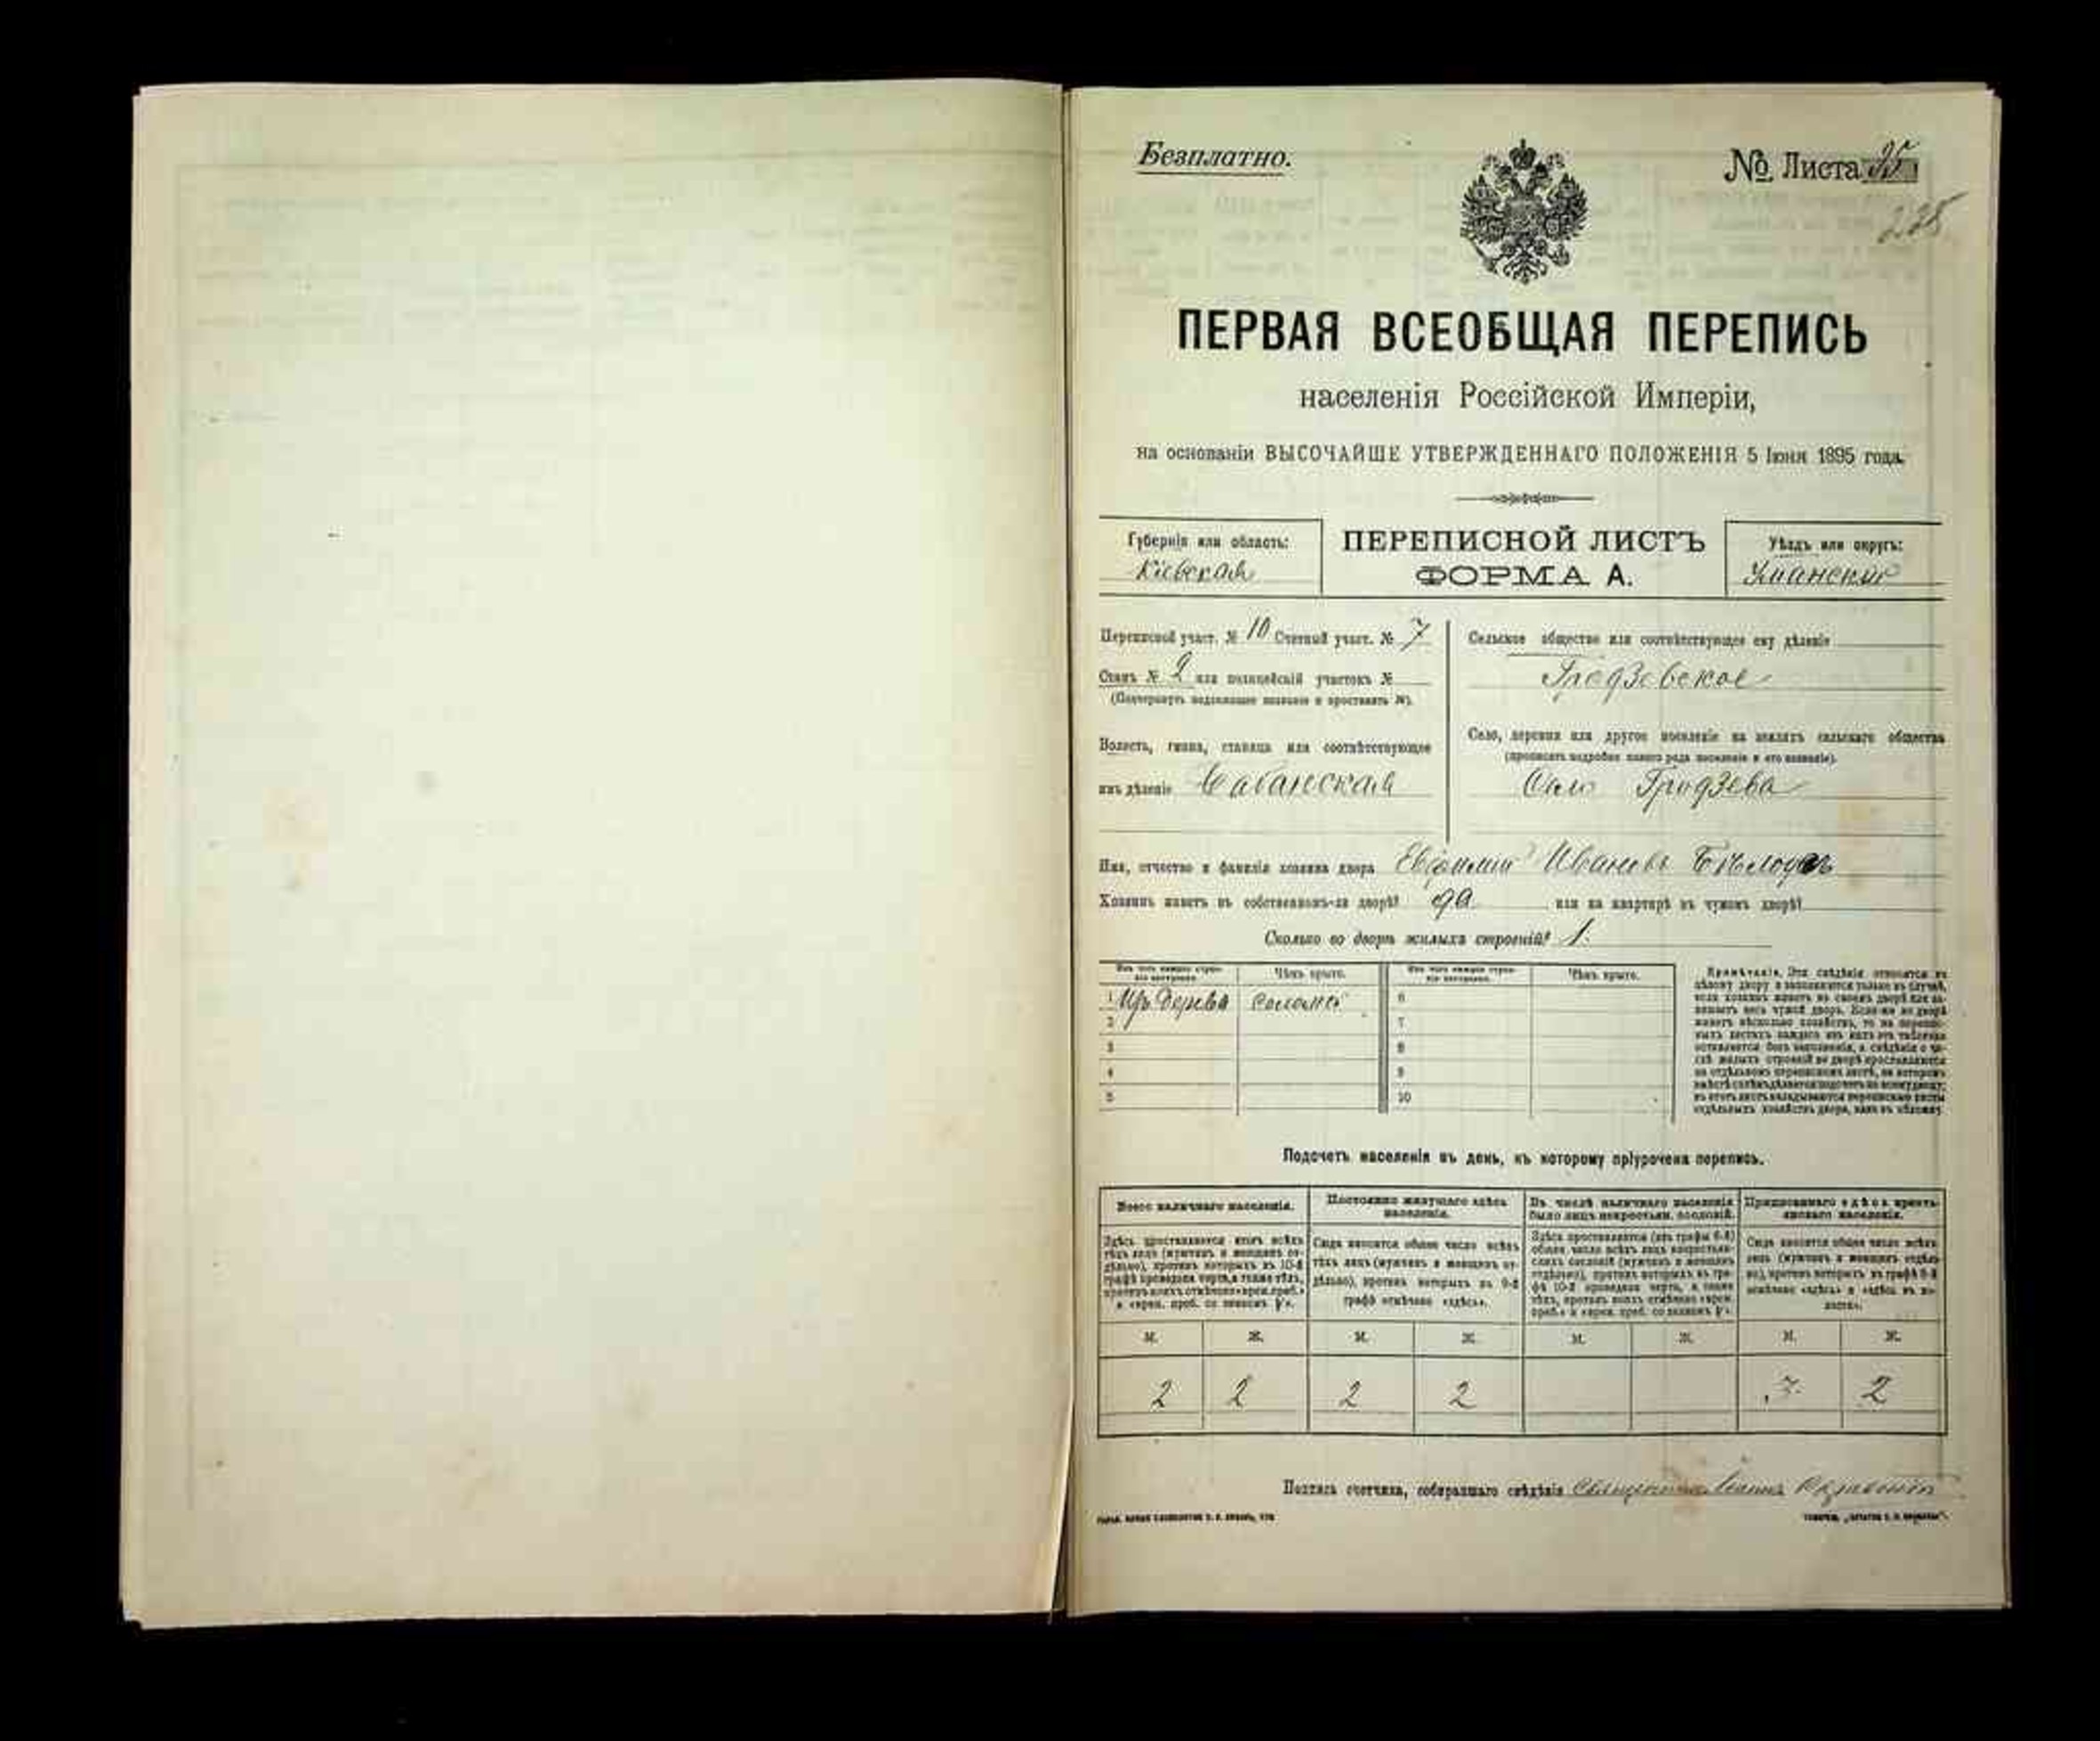 Безплатно.
№ Листа 35
228
ПЕРВАЯ ВСЕОБЩАЯ ПЕРЕПИСЬ
населенія Россійской Имперіи,
на основаніи ВЫСОЧАЙШЕ УТВЕРЖДЕННАГО ПОЛОЖЕНІЯ 5 Іюня 1895 года.
Губернія или область:
Кіевская
ПЕРЕПИСНОЙ ЛИСТЪ
ФОРМА А.
Уѣздъ или округъ:
Уманскій
Переписной участ. № 10 Счетный участ. № 7
Станъ № 2 или полицейскій участокъ №
(Подчеркнуть надлежащее названіе и проставить №).
Волость, гмина, станица или соотвѣтствующее
имъ дѣленіе
Сельское общество или соотвѣтствующее ему дѣленіе
Гродзевское
Село, деревня или другое поселеніе на земляхъ сельскаго общества
(прописать подробно какого рода поселеніе и его названіе).
Село Гродзева
Имя, отчество и фамилія хозяина двора Евфимій Ивановъ
Хозяинъ живетъ въ собственномъ-ли дворѣ? да или на квартирѣ въ чужомъ дворѣ?
Сколько во дворѣ жилыхъ строеній? 1.
Изъ чего каждое строеніе построено. Чѣмъ крыто. Изъ чего каждое строеніе построено. Чѣмъ крыто.
1 Изъ дерева соломой 6
2 7
3 8
4 9
5 10
Примѣчаніе. Эти свѣдѣнія относятся къ
цѣлому двору и заполняются только въ случаѣ,
если хозяинъ живетъ въ своемъ дворѣ или за-
нимаетъ весь чужой дворъ. Если-же во дворѣ
живетъ нѣсколько хозяйствъ, то на перепис-
ныхъ листахъ каждаго изъ нихъ эта табличка
оставляется безъ заполненія, а свѣдѣнія о чи-
слѣ жилыхъ строеній во дворѣ проставляются
на отдѣльномъ переписномъ листѣ, на которомъ
вмѣстѣ съ тѣмъ дѣлается подсчетъ по всему двору;
въ этотъ листъ вкладываются переписные листы
отдѣльныхъ хозяйствъ двора, какъ въ обложку.
Подсчетъ населенія въ день, къ которому пріурочена перепись.
Всего наличнаго населенія.
Здѣсь проставляется итогъ всѣхъ
тѣхъ лицъ (мужчинъ и женщинъ от-
дѣльно), противъ которыхъ въ 10-й
графѣ проведена черта, а также тѣхъ,
противъ коихъ отмѣчено «врем. преб.»
и «врем. преб. со знакомъ
Постоянно живущаго здѣсь
населенія.
Сюда вносится общее число всѣхъ
тѣхъ лицъ (мужчинъ и женщинъ от-
дѣльно), противъ которыхъ въ 9-й
графѣ отмѣчено «здѣсь».
Въ числѣ наличнаго населенія
было лицъ некрестьян. сословій.
Здѣсь проставляется (изъ графы 6-й)
общее число всѣхъ лицъ некрестьян-
скихъ сословій (мужчинъ и женщинъ
отдѣльно), противъ которыхъ въ гра-
фѣ 10-й проведена черта, а также
тѣхъ, противъ коихъ отмѣчено «врем.
преб.» и «врем. преб. со знакомъ
Приписаннаго здѣсь кресть-
янскаго населенія.
Сюда вносится общее число всѣхъ
лицъ (мужчинъ и женщинъ отдѣль-
но), противъ которыхъ въ графѣ 8-й
отмѣчено «здѣсь» и «здѣсь въ во-
лости».
М. Ж. М. Ж. М. Ж. М. Ж.
2 2 2 2 3 2
Подпись счетчика, собиравшаго свѣдѣнія Священникъ Іоаннъ